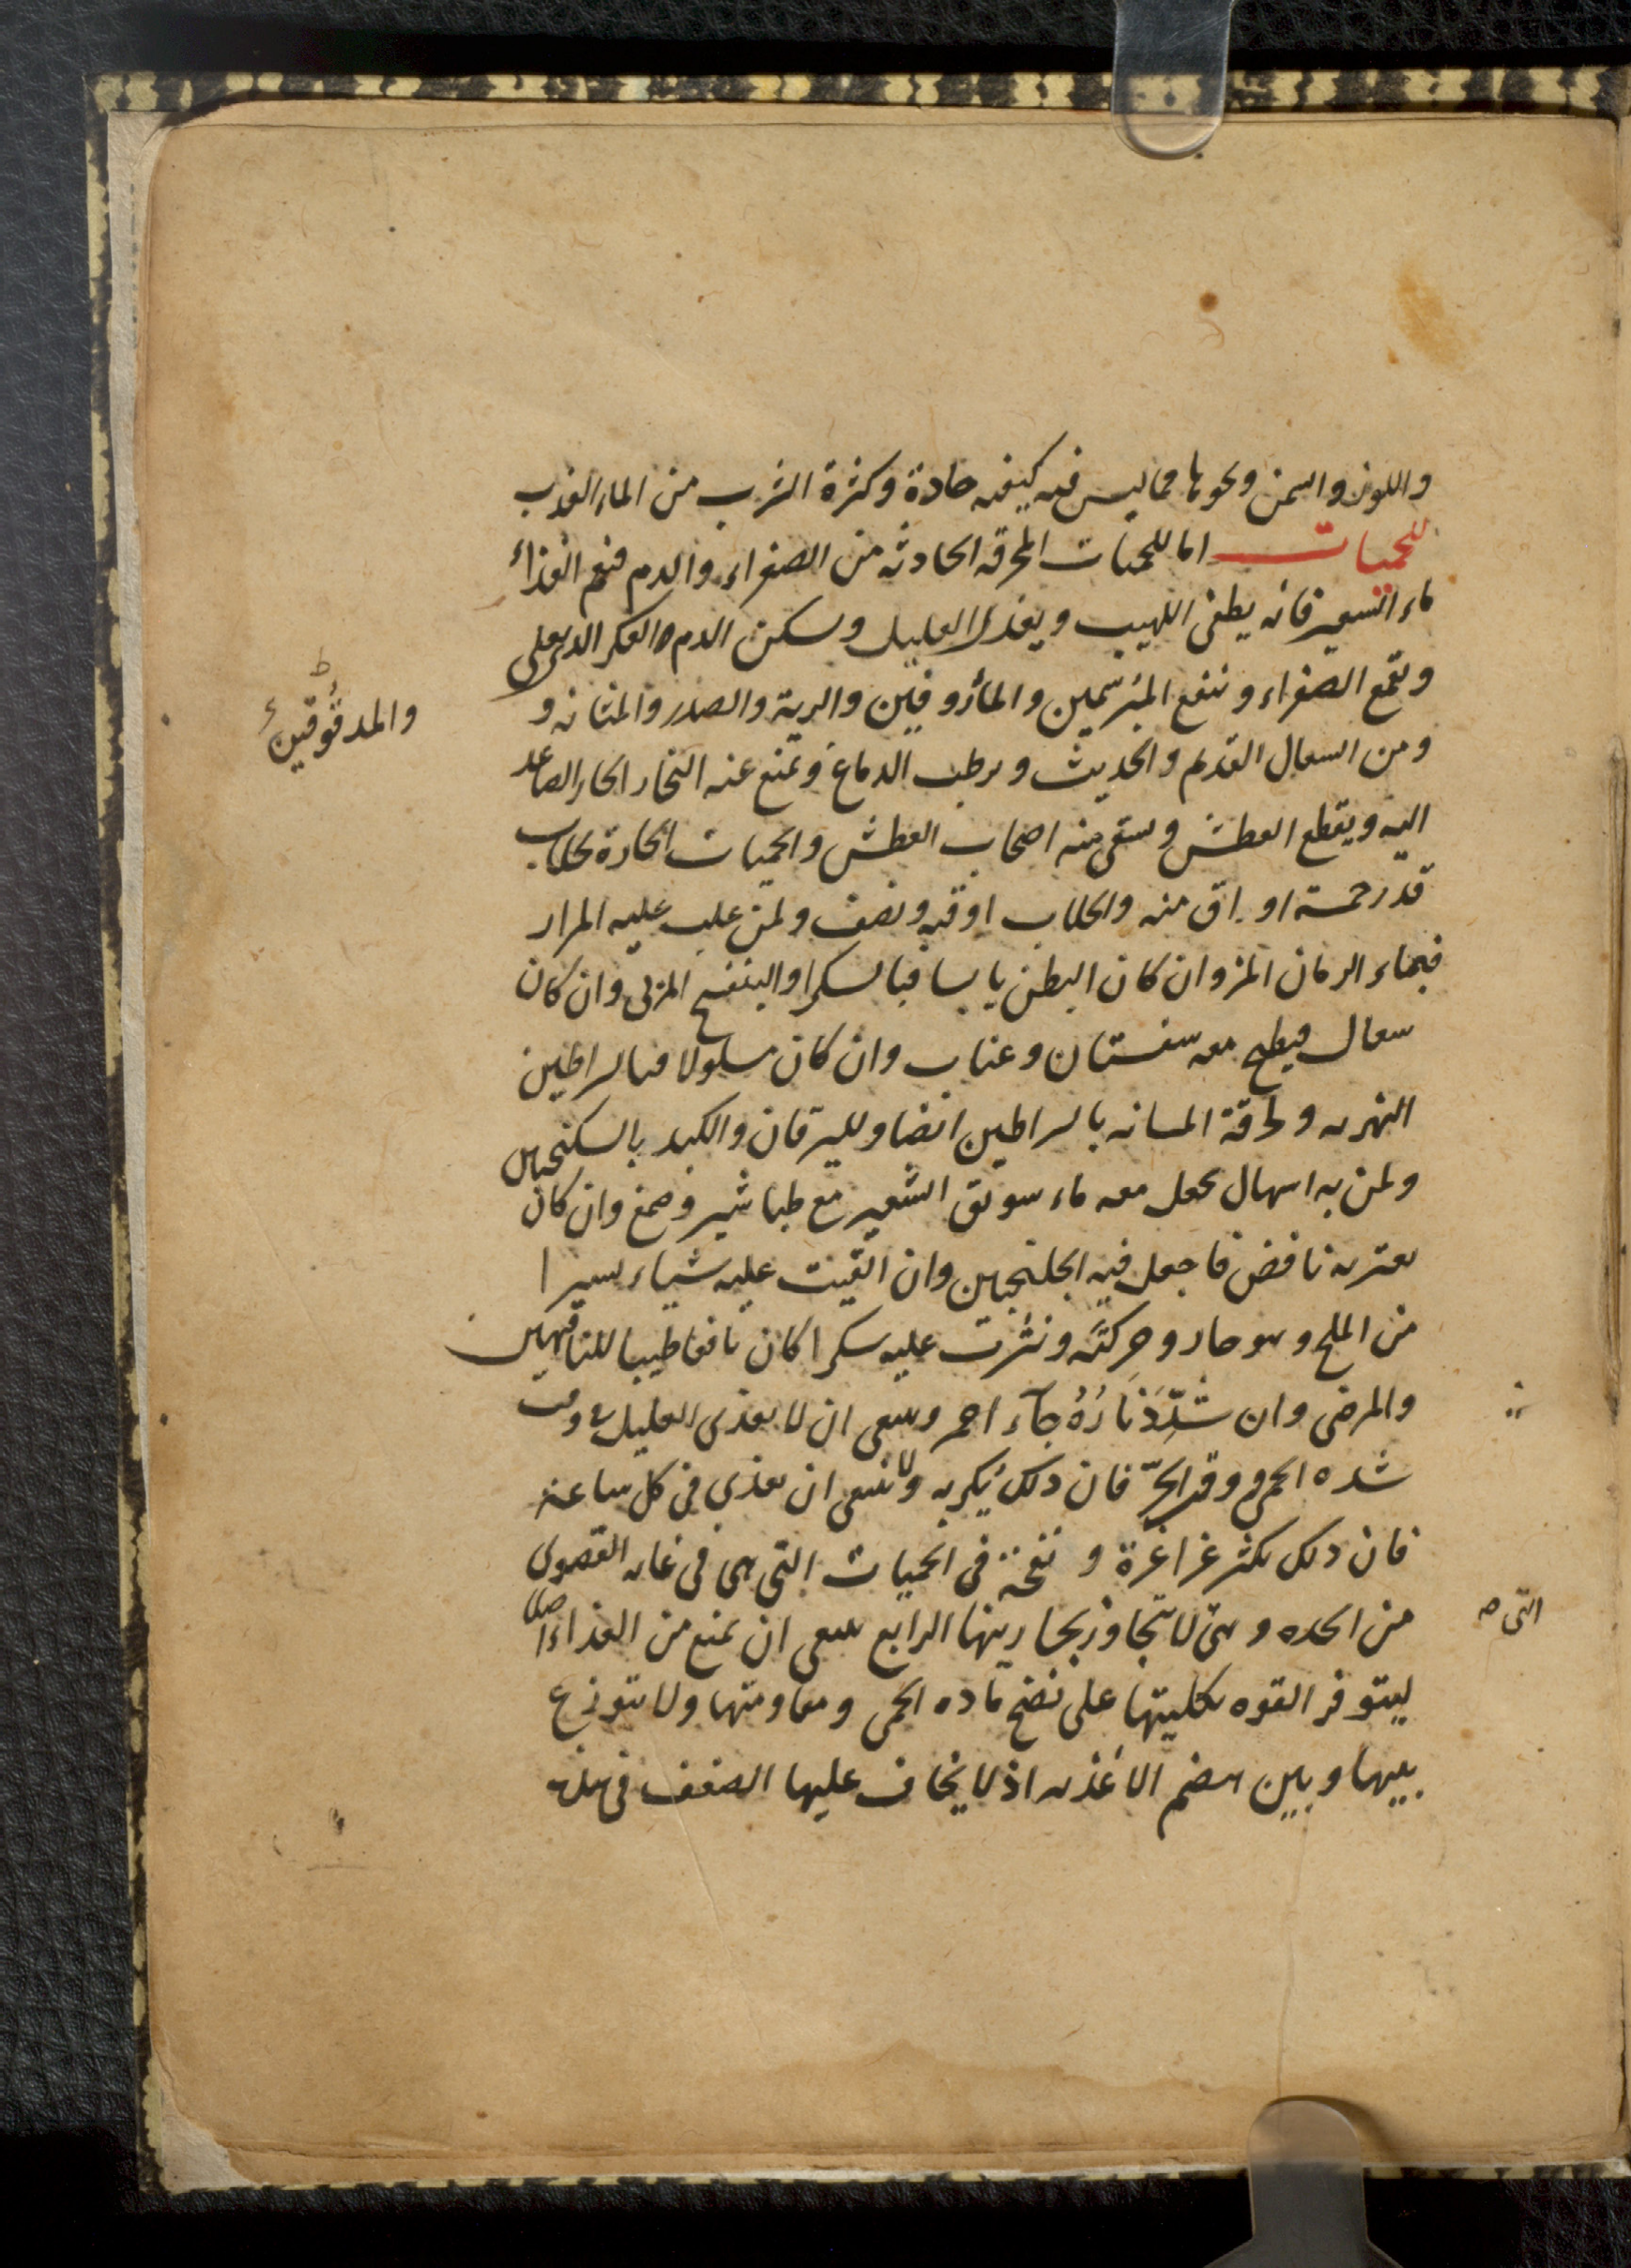 واللوز والسمن ونحوها مما ليس فيه كيفيه حادة وكثرة الشرب من الماء العذب
للحميات اما للحميات المحرقه الحادثه من الصفراء والدم فنعم الغذاء
ماء الشعير فانه يطفى اللهيب ويغذى العليل ويسكن الدم العكر الذى يغلى
ويقمع الصفراء وينفع المبرسمين والمأروفين والرية والصدر والمثانه و
والمدقوقين
ومن السعال القديم والحديث ويرطب الدماغ ويمنع عنه البخار الحار الصاعد
اليه ويقطع العطش ويسقى منه اصحاب العطش والحميات الحارة بجلاب
قدر خمسة اواق منه والجلاب اوقيه ونصف ولمن غلب عليه المرار
فبماء الرمان المز وان كان البطن يابسا فبالسكر او البنفسج المربى وان كان
سعال فيطبخ معه سفستان وعناب وان كان مسلولا فبالسراطين
النهريه ولحرقة المثانه بالسراطين ايضا ولليرقان والكبد بالسكنجبين
ولمن به اسهال يجعل معه ماء سويق الشعير مع طباشير وصمغ وان كان
يعتريه نافض فاجعل فيه الجلنجبين وان القيت عليه شياء يسيرا
من الملح وهو حار وحركته ونثرت عليه سكرا كان نافعا طيبا للناقهين
والمرضى وان شدّد ناره جآء احمر وينبغى ان لا يغذى العليل فى وقت
شده الحمى ووقد الحرّ فان ذلك يكربه ولا ينبغى ان يغذى فى كل ساعة
فان ذلك يكثر غراغرة ونفخة فى الحميات التى هى فى غايه القصوى
من الحده وهى لا يتجاوز بحارينها الرابع ينبغى ان يمنع من الغذاء اصلا
التى
ليتوفر القوه بكليتها على نضج ماده الحمى ومقاومتها ولا يتوزع
بينها وبين هضم الاغذيه اذ لا يخاف عليها الضعف فى هذه